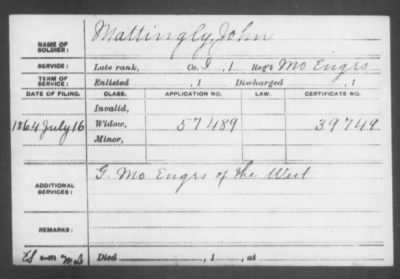 NAME OF SOLDIER: Mattingly, John
SERVICE: Late rank, Co. I, 1 Reg't Mo Engrs
TERM OF SERVICE: Enlisted , 1 Discharged , 1
DATE OF FILING. CLASS. APPLICATION NO. LAW. CERTIFICATE NO.
Invalid,
1864 July 16 Widow, 57489 39749
Minor,
ADDITIONAL SERVICES: G. Mo Engrs of the West
REMARKS:
Died , 1 , at